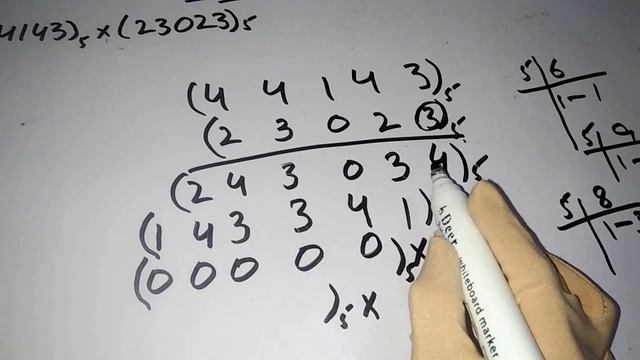 4143)₅ × (23023)₅
(4 4 1 4 3)₅
(2 3 0 2 3)₅
(2 4 3 0 3 4)₅
(1 4 3 3 4 1)
(0 0 0 0 0)₅ ×
)₅ ×
5 6
1 - 1
5 9
1 -
5 8
1 - 3
Deer whiteboard marker